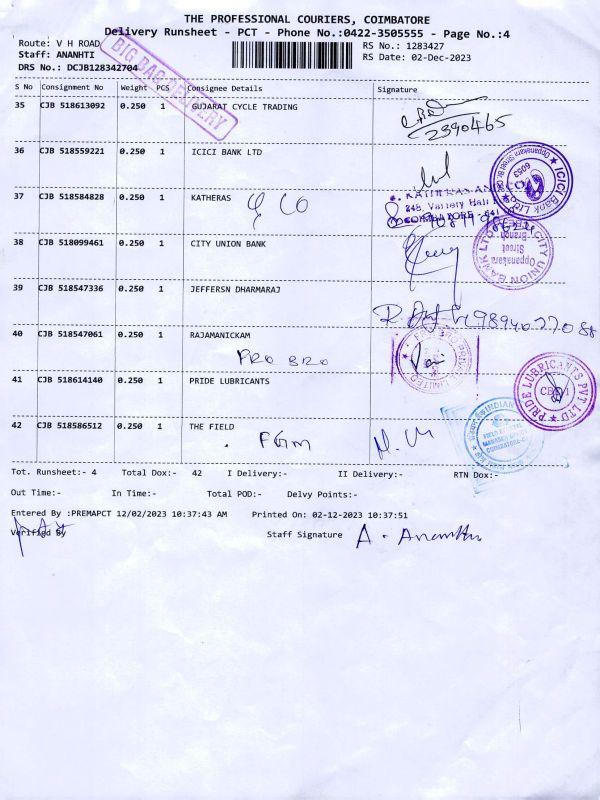 THE PROFESSIONAL COURIERS, COIMBATORE
Delivery Runsheet - PCT - Phone No.:0422-3505555 - Page No.:4
Route: V H ROAD
Staff: ANANHTI
DRS No.: DCJB128342704
RS No.: 1283427
RS Date: 02-Dec-2023
BIG BAG DELIVERY
S No Consignment No Weight PCS Consignee Details Signature
35 CJB 518613092 0.250 1 GUJARAT CYCLE TRADING
2390465
36 CJB 518559221 0.250 1 ICICI BANK LTD
ICICI Bank Ltd
6053
37 CJB 518584828 0.250 1 KATHERAS & CO
38 CJB 518099461 0.250 1 CITY UNION BANK
CITY UNION BANK LTD
Oppanakara
Street
Branch
39 CJB 518547336 0.250 1 JEFFERSN DHARMARAJ
9894027088
40 CJB 518547061 0.250 1 RAJAMANICKAM
PRO BRO
41 CJB 518614140 0.250 1 PRIDE LUBRICANTS
PRIDE LUBRICANTS PVT LTD
42 CJB 518586512 0.250 1 THE FIELD
FGM
INDIAN
Tot. Runsheet:- 4 Total Dox:- 42 I Delivery:- II Delivery:- RTN Dox:-
Out Time:- In Time:- Total POD:- Delvy Points:-
Entered By :PREMAPCT 12/02/2023 10:37:43 AM Printed On: 02-12-2023 10:37:51
Verified By Staff Signature A. Ananthi